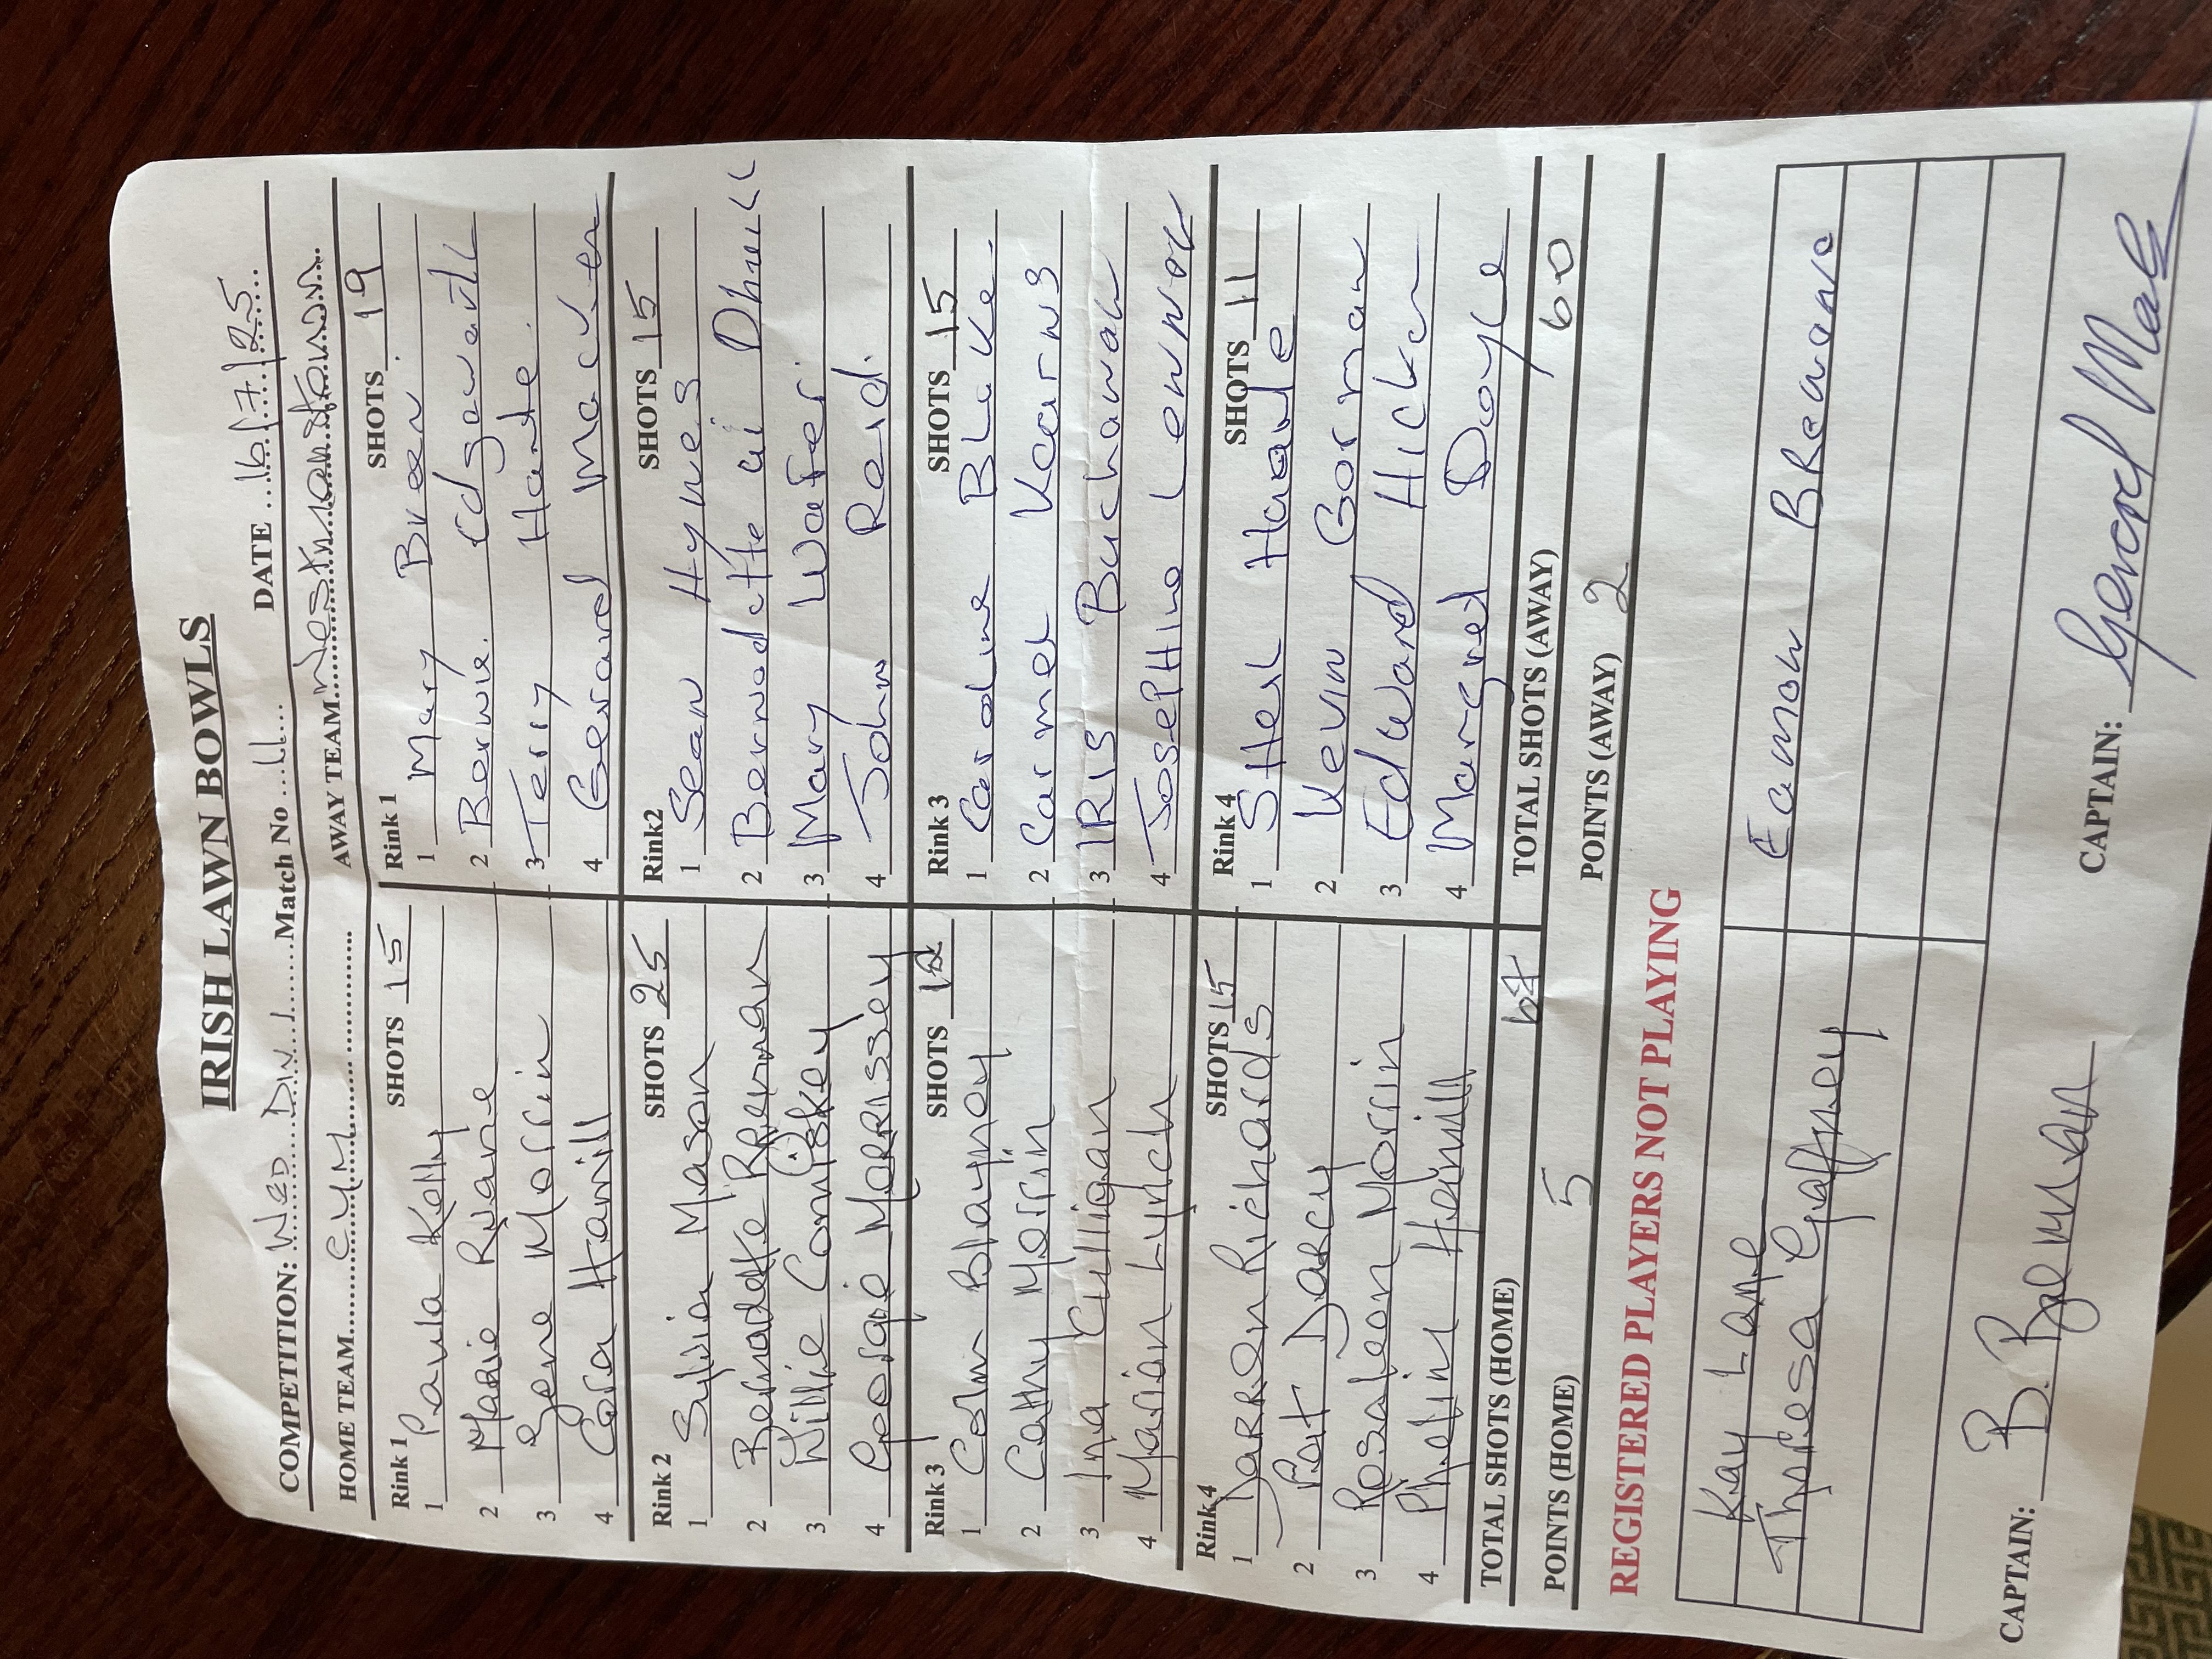 IRISH LAWN BOWLS
COMPETITION: Wed Div 1 Match No 11 DATE 16/7/25
HOME TEAM CYM AWAY TEAM Westmanstown
Rink 1 SHOTS 15
1 Paula Kelly
2 Marie Ruane
3 Gene Morrin
4 Cora Hamill
Rink 1 SHOTS 19
1 Mary Breen
2 Bernie Edgeworth
3 Terry Harte
4 Gerard Macken
Rink 2 SHOTS 25
1 Sylvia Mason
2 Bernadette Brennan
3 Willie Comiskey
4 Georgie Morrissey
Rink2 SHOTS 15
1 Sean Hynes
2 Bernadette
3 Mary Wafer
4 John Reid
Rink 3 SHOTS
1 Colm Blayney
2 Cathy Morrin
3 Ina Culligan
4 Marian Lynch
Rink 3 SHOTS 15
1 Caroline BLake
2 Carmel Kearns
3 IRIS Buchanan
4 JosepHine Lennox
Rink 4 SHOTS 15
1 Darren Richards
2 Pat Darcy
3 Rosaleen Morrin
4 Phelim Hamill
Rink 4 SHOTS 11
1 SHeL
2 Kevin Gorman
3 Edward Hickey
4 Margret Doyle
TOTAL SHOTS (HOME) 67 TOTAL SHOTS (AWAY) 60
POINTS (HOME) 5 POINTS (AWAY) 2
REGISTERED PLAYERS NOT PLAYING
Kay Lane Eamon
Theresa Gaffney
CAPTAIN: B. Brennan CAPTAIN: Gerard